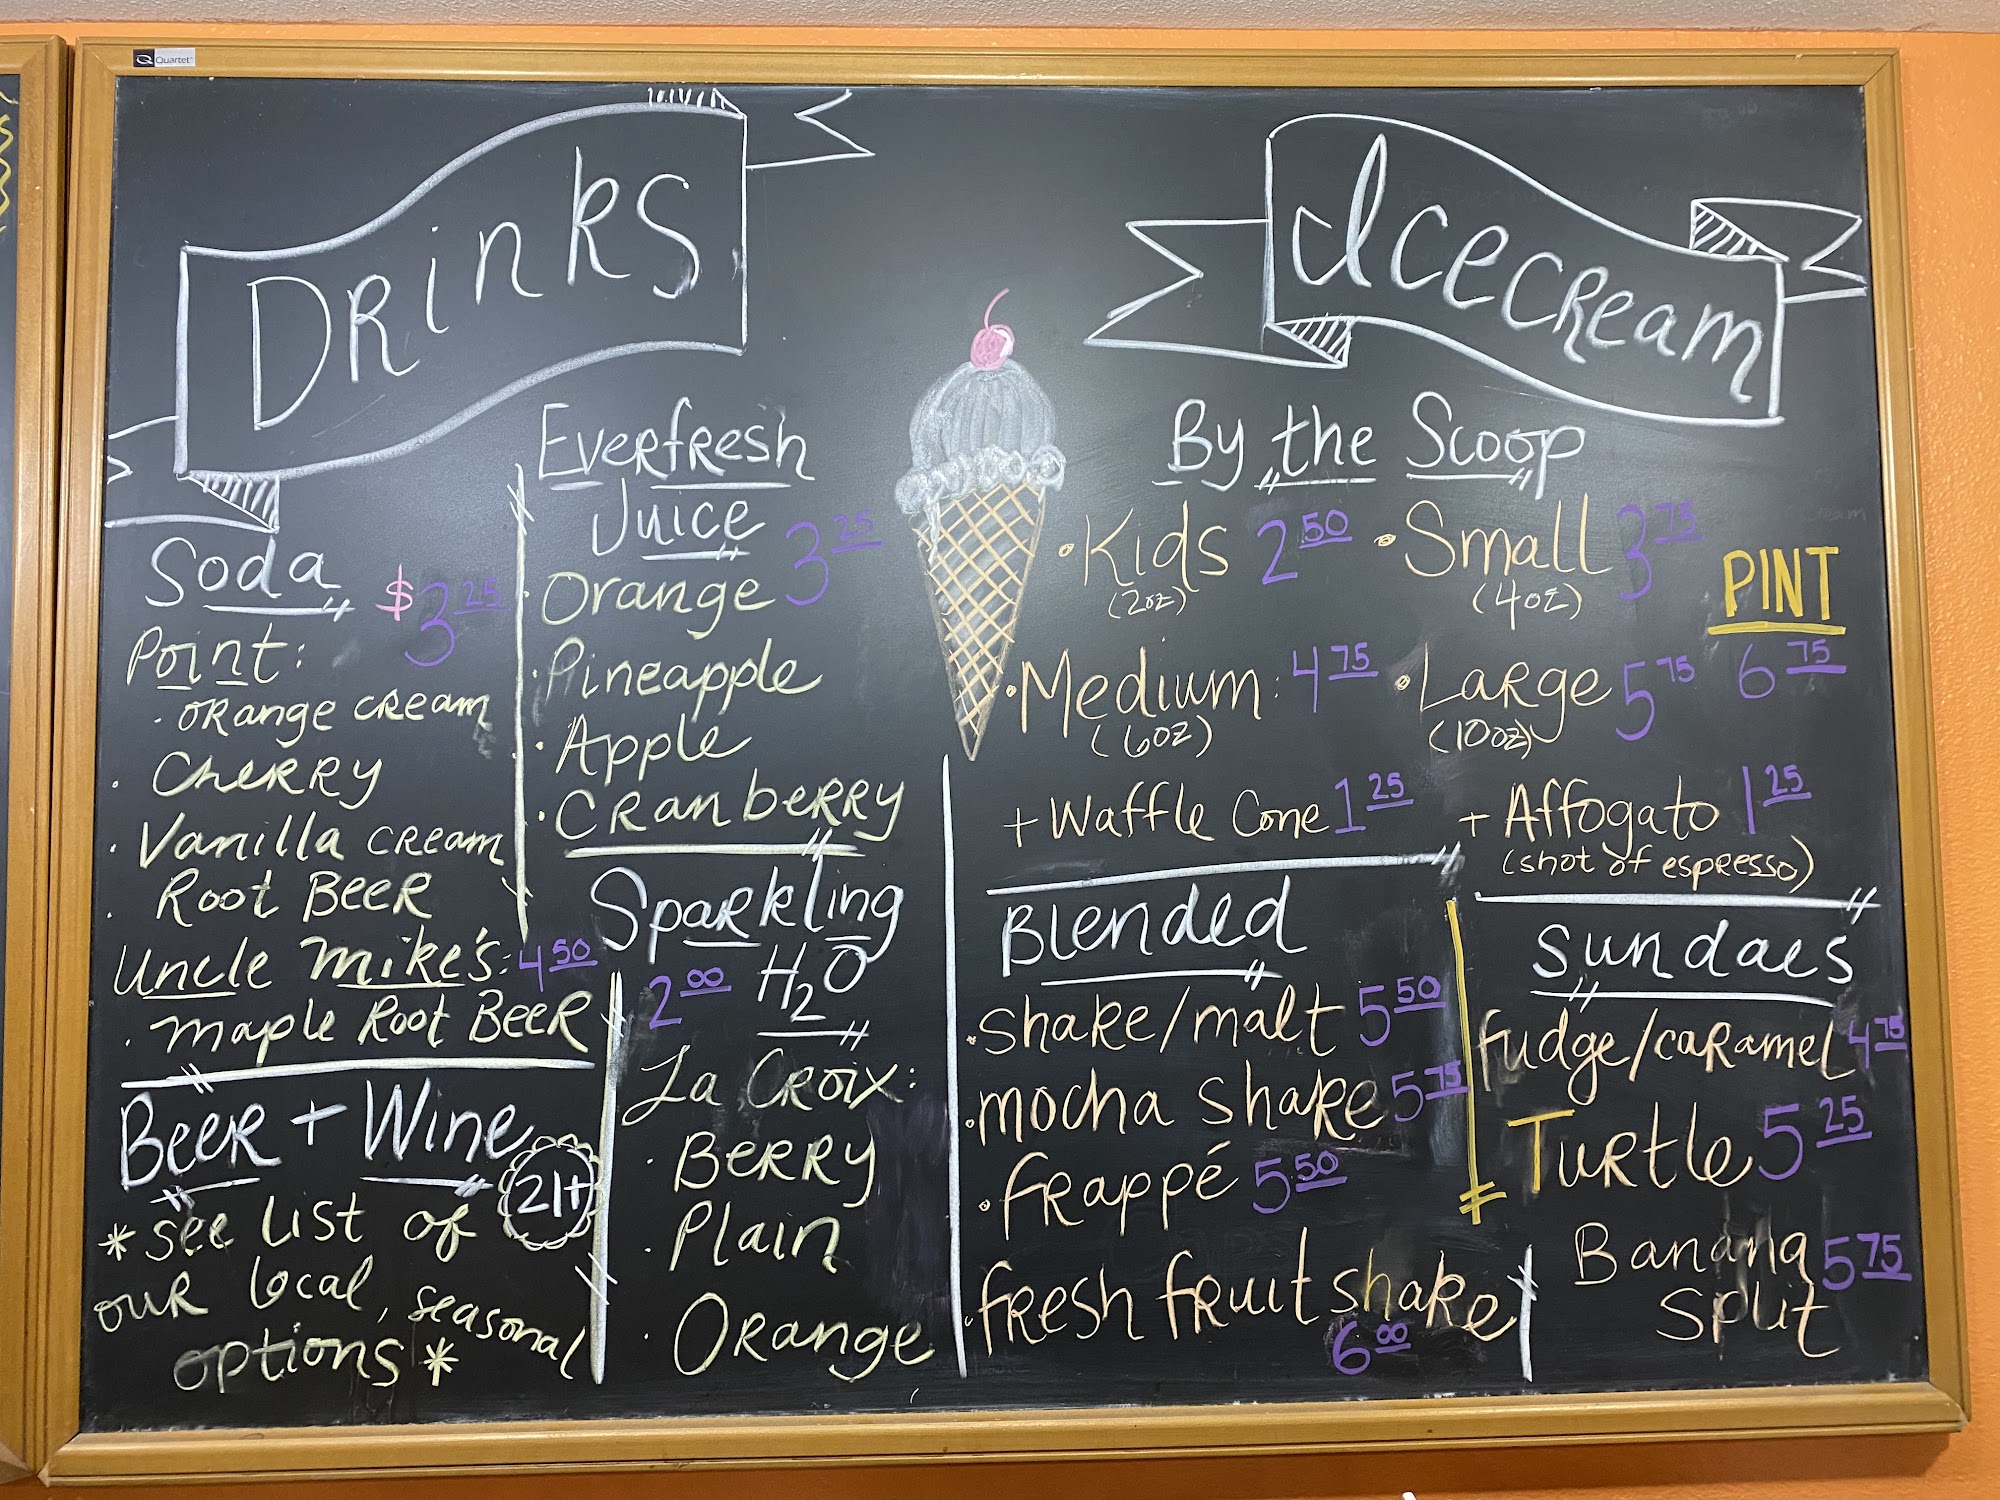 Quartet
Drinks
Soda $3.25
Point:
· Orange Cream
· Cherry
· Vanilla Cream
· Root Beer
Uncle Mike's: 4.50
· Maple Root Beer
Beer + Wine
21+
*See list of
our local, seasonal
options*
Everfresh
Juice 3.25
· Orange
· Pineapple
· Apple
· Cranberry
Sparkling
2.00 H2O
La Croix:
· Berry
· Plain
· Orange
Icecream
By the Scoop
· Kids 2.50 · Small 3.75
(2oz) (4oz)
PINT
6.75
· Medium: 4.75 · Large 5.75
(6oz) (10oz)
+ Waffle Cone 1.25 + Affogato 1.25
(shot of espresso)
Blended
· Shake/malt 5.50
· mocha shake 5.75
· frappé 5.50
· fresh fruit shake
6.00
Sundaes
fudge/caramel 4.75
Turtle 5.25
Banana 5.75
Split